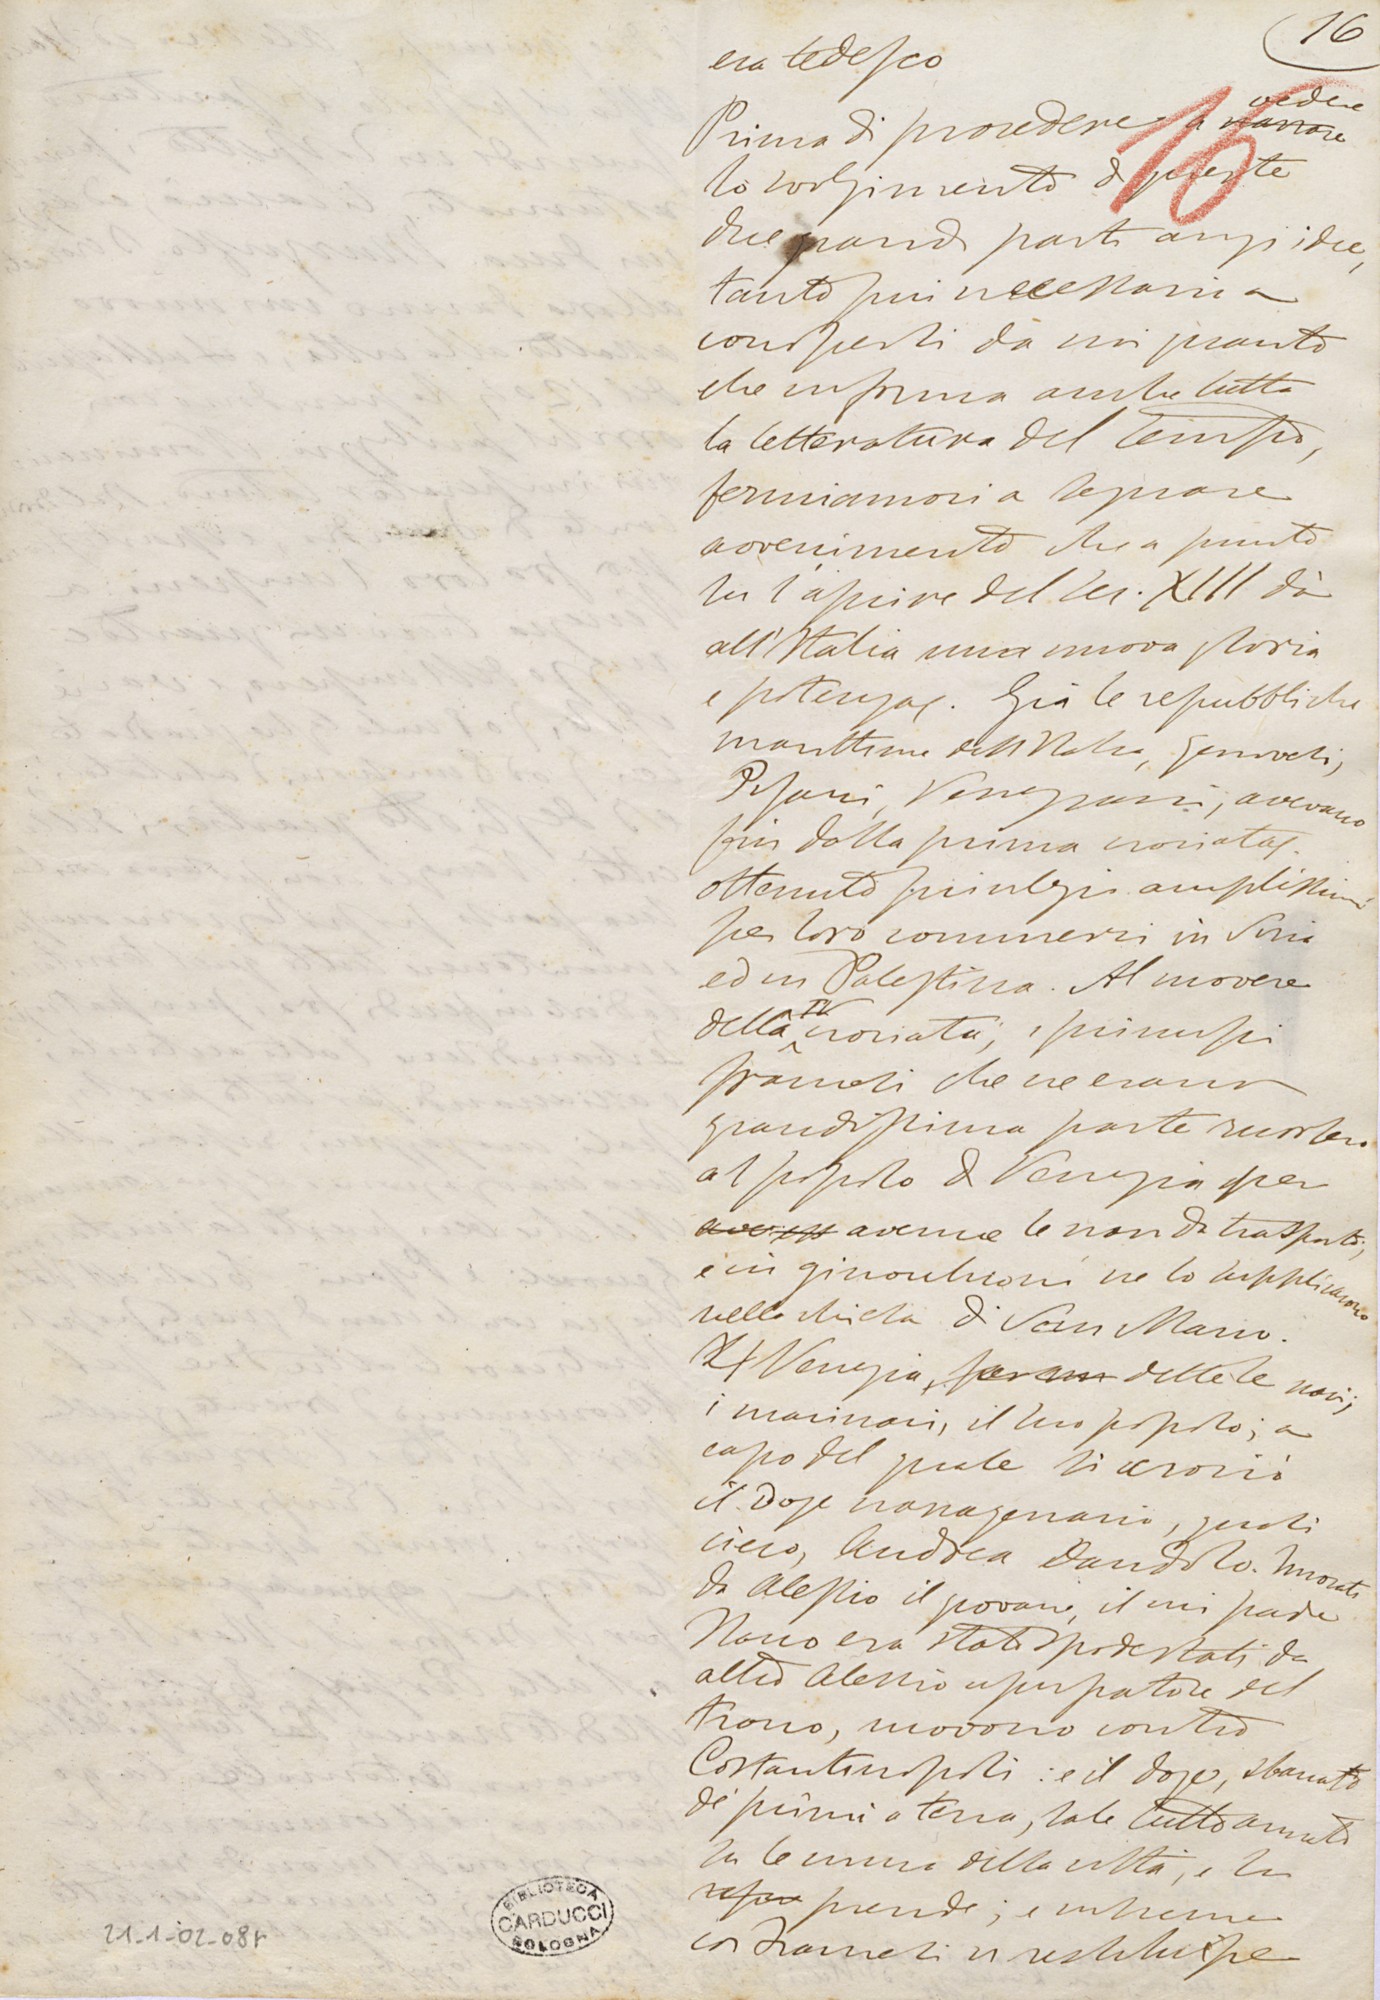 16
era tedesco
16
Prima di procedere a narrare vedere
lo svolgimento di queste
due grandi parti anzi idee,
tanto più necessaria a
conoscersi da noi quanto
che informa anche tutta
la letteratura del tempo,
fermiamoci a segnare
avvenimento che a punto
su l'aprire del sec. XIII dà
all'Italia una nuova gloria
e potenza. Già le repubbliche
marittime dell'Italia, genovesi,
Pisani, Veneziani, avevano
fin dalla prima crociata
ottenuto privilegi amplissimi
per loro commerci in Siria
ed in Palestina. Al movere
della IV crociata, i principi
francesi che ne erano
grandissima parte ricorsero
al popolo di Venezia per
averne le navi da trasporto;
e in ginocchioni ne lo supplicarono
nella chiesa di San Marco.
E Venezia, dette le navi,
i marinari, il suo popolo; a
capo del quale si crociò
il Doge nonagenario, quasi
cieco, Andrea Dandolo.
da Alessio il giovane, il cui padre
Isacco era stato spodestato da
altro Alessio usurpatore del
trono, movono contro
Costantinopoli: e il doge, sbarcato
de' primi a terra, sale tutto armato
su le mura della città, e la
prende; e insieme
co' Francesi vi restituisce
BIBLIOTECA
CARDUCCI
BOLOGNA
21_1_02_08r